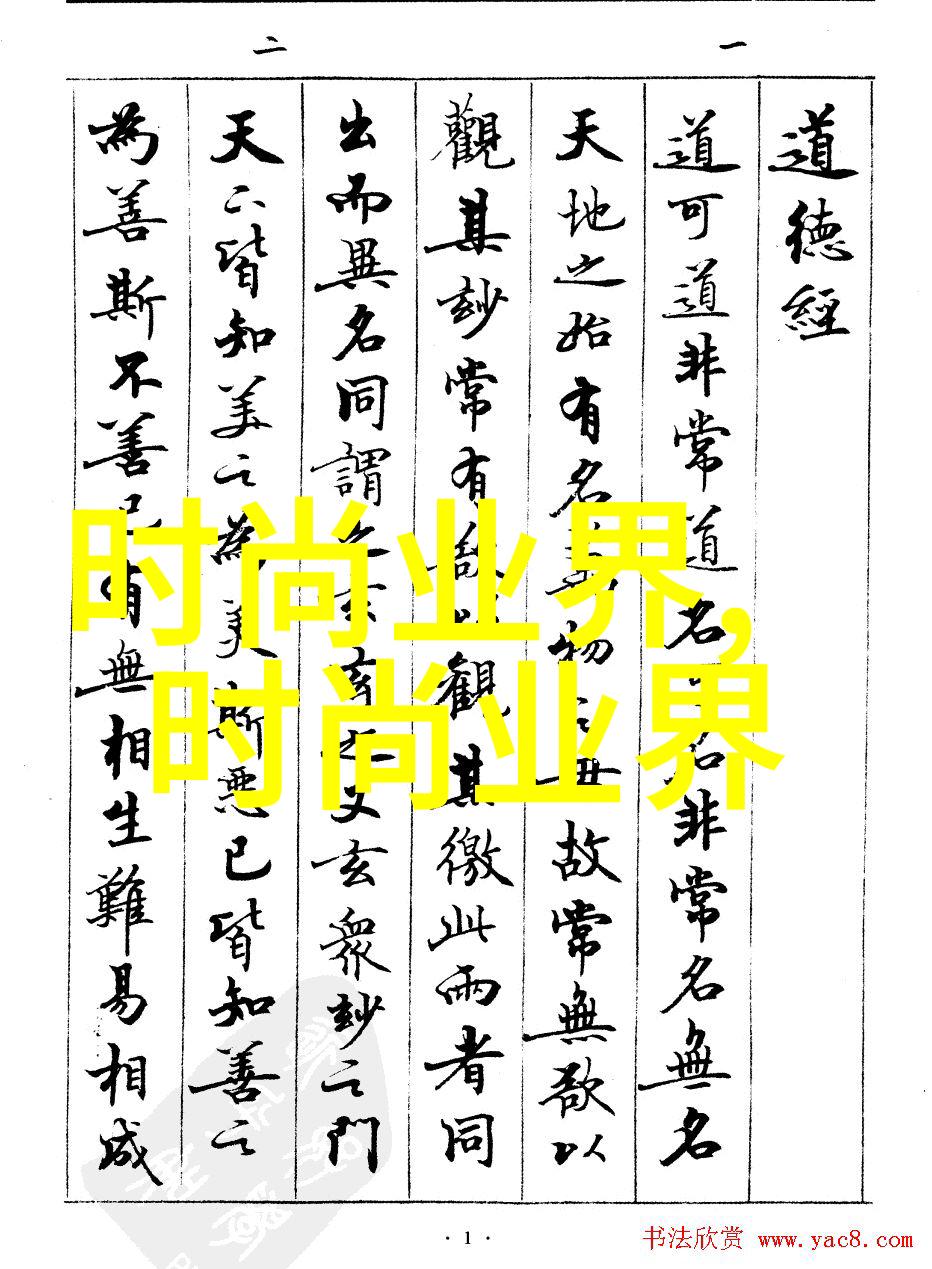 一
二
道德經
道可道非常道名可名非常名無名
天地之始有名萬物之母故常無欲以
觀其玅常有欲以觀其徼此兩者同
出而異名同謂之玄玄之又玄衆玅之門
天下皆知美之為美斯惡已皆知善之
為善斯不善已有無相生難易相成
时尚业界,
时尚业界
· 1 ·
书法欣赏 www.yac8.com